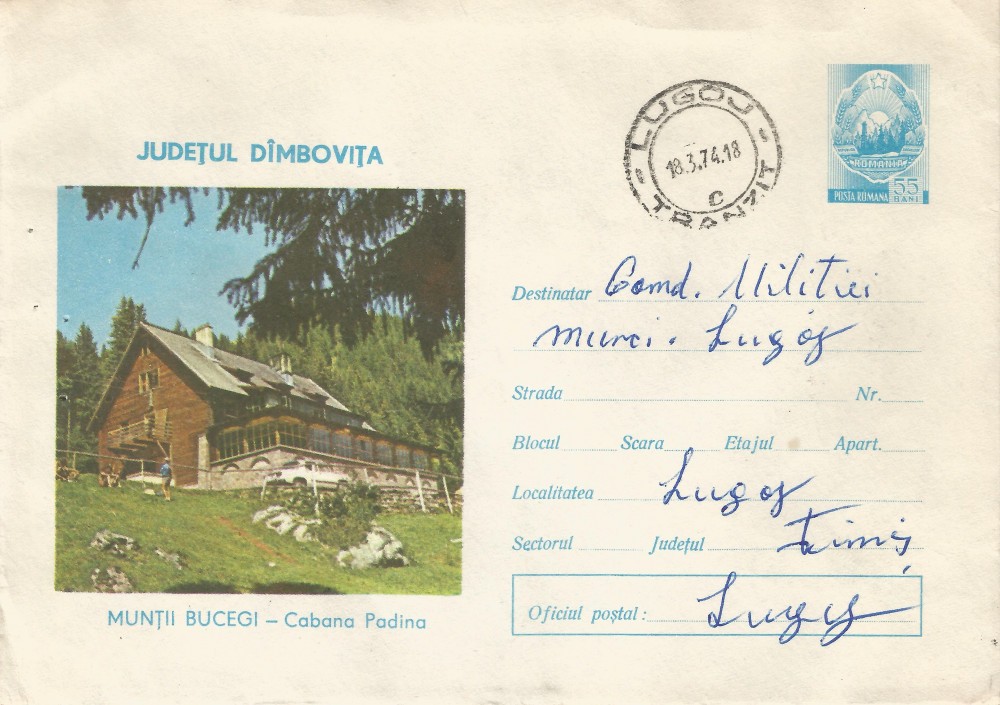 JUDEŢUL DÎMBOVIŢA
MUNŢII BUCEGI – Cabana Padina
LUGOJ
18.3.74.18
C
TRANZIT
ROMANIA
POSTA ROMANA 55 BANI
Destinatar Comd. Militiei
munci. Lugoj
Strada Nr.
Blocul Scara Etajul Apart.
Localitatea Lugoj
Sectorul Judeţul Timiş
Oficiul poştal: Lugoj